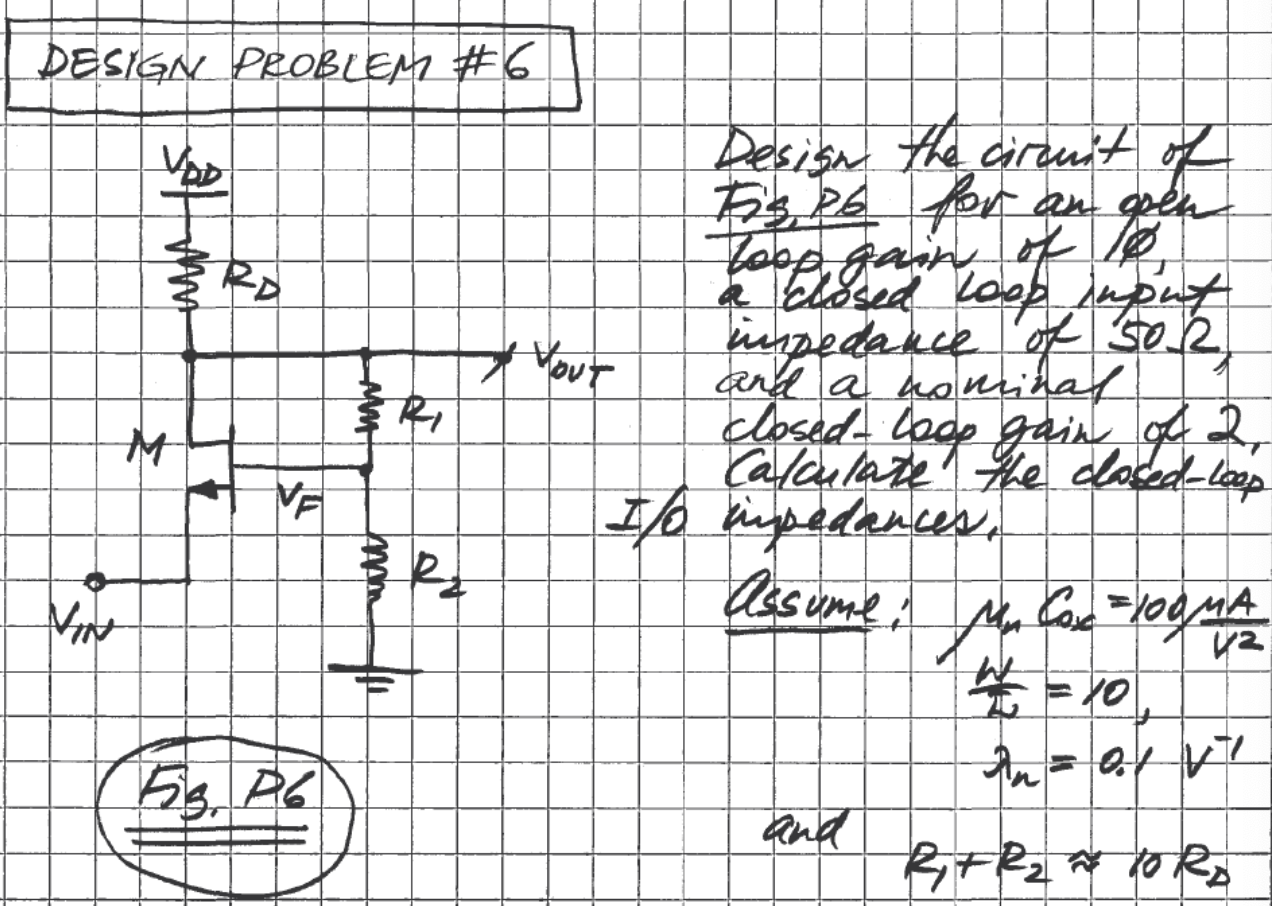 DESIGN PROBLEM #6
VDD
RD
VOUT
R1
M
VF
R2
VIN
Fig. P6
Design the circuit of
Fig. P6 for an open
loop gain of 10,
a closed loop input
impedance of 50Ω,
and a nominal
closed-loop gain of 2.
Calculate the closed-loop
I/O impedances.
Assume: μn Cox = 100 μA/V2
W/L = 10,
λn = 0.1 V-1
and
R1 + R2 ≈ 10 RD